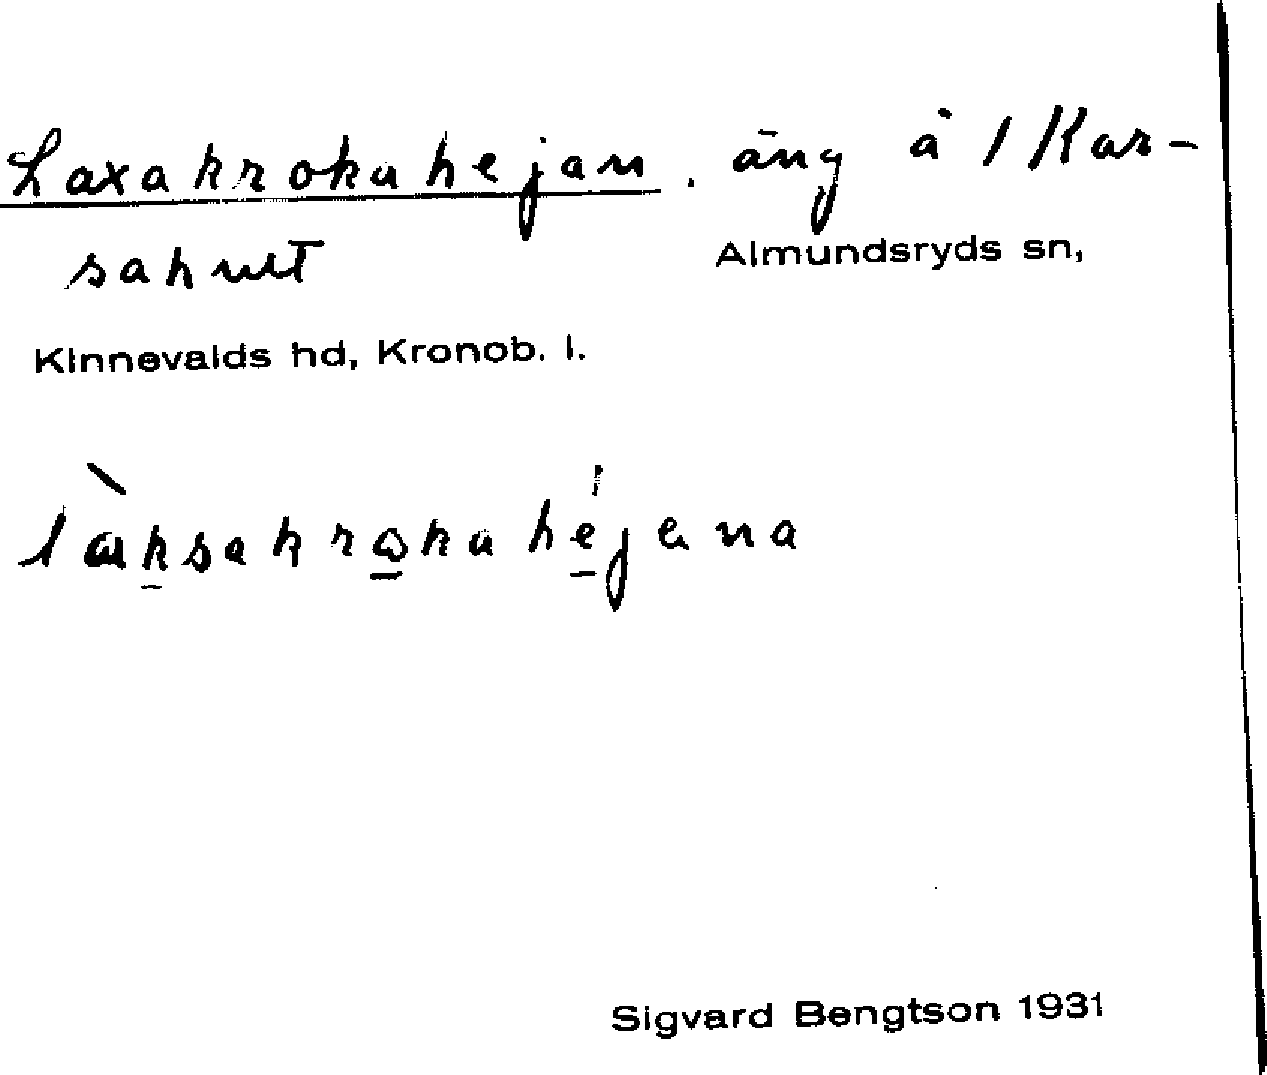 Laxakrokahejan, äng å 1 Kar-
sahult
Almundsryds sn,
Kinnevalds hd, Kronob. l.
làksakrokahéjana
Sigvard Bengtson 1931